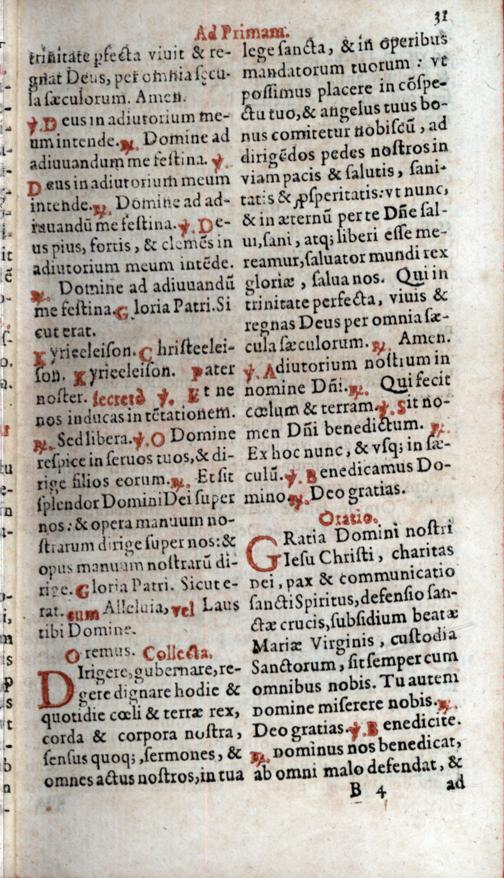 Ad Primam. 31
trinitate pfecta viuit & re-
gnat Deus, per omnia sęcu-
la sæculorum. Amen.
℣. Deus in adiutorium me-
um intende. ℟. Domine ad
adiuuandum me festina. ℣.
Deus in adiutorium meum
intende. ℟. Domine ad ad-
iuuandū me festina. ℣. De-
us pius, fortis, & clemēs in
adiutorium meum intēde.
℟. Domine ad adiuuandū
me festina. Gloria Patri. Si
cut erat.
Kyrieeleison. Christeelei-
son. Kyrieeleison. Pater
noster. secretò ℣. Et ne
nos inducas in tētationem.
℟. Sed libera. ℣. O Domine
respice in seruos tuos, & di-
rige filios eorum. ℟. Et sit
splendor Domini Dei super
nos: & opera manuum no-
strarum dirige super nos: &
opus manuum nostrarū di-
rige. Gloria Patri. Sicut e-
rat. cum Alleluia, vel Laus
tibi Domine.
Oremus. Collecta.
DIrigere, gubernare, re-
gere dignare hodie &
quotidie cœli & terræ rex,
corda & corpora nostra,
sensus quoq;, sermones, &
omnes actus nostros, in tua
lege sancta, & in operibus
mandatorum tuorum: vt
possimus placere in cōspe-
ctu tuo, & angelus tuus bo-
nus comitetur nobiscū, ad
dirigēdos pedes nostros in
viam pacis & salutis, sani-
tatis & ꝓsperitatis: vt nunc,
& in æternū per te Dñe sal-
ui, sani, atq; liberi esse me-
reamur, saluator mundi rex
gloriæ, salua nos. Qui in
trinitate perfecta, viuis &
regnas Deus per omnia sæ-
cula sæculorum. ℟. Amen.
℣. Adiutorium nostrum in
nomine Dñi. ℟. Qui fecit
cœlum & terram. ℣. Sit no-
men Dñi benedictum. ℟.
Ex hoc nunc, & vsq; in sæ-
culū. ℣. Benedicamus Do-
mino ℟. Deo gratias.
Oratio.
GRatia Domini nostri
Iesu Christi, charitas
Dei, pax & communicatio
sancti Spiritus, defensio san-
ctæ crucis, subsidium beatæ
Mariæ Virginis, custodia
Sanctorum, sit semper cum
omnibus nobis. Tu autem
Domine miserere nobis. ℟.
Deo gratias. ℣. Benedicite.
℟. Dominus nos benedicat,
ab omni malo defendat, &
B 4 ad